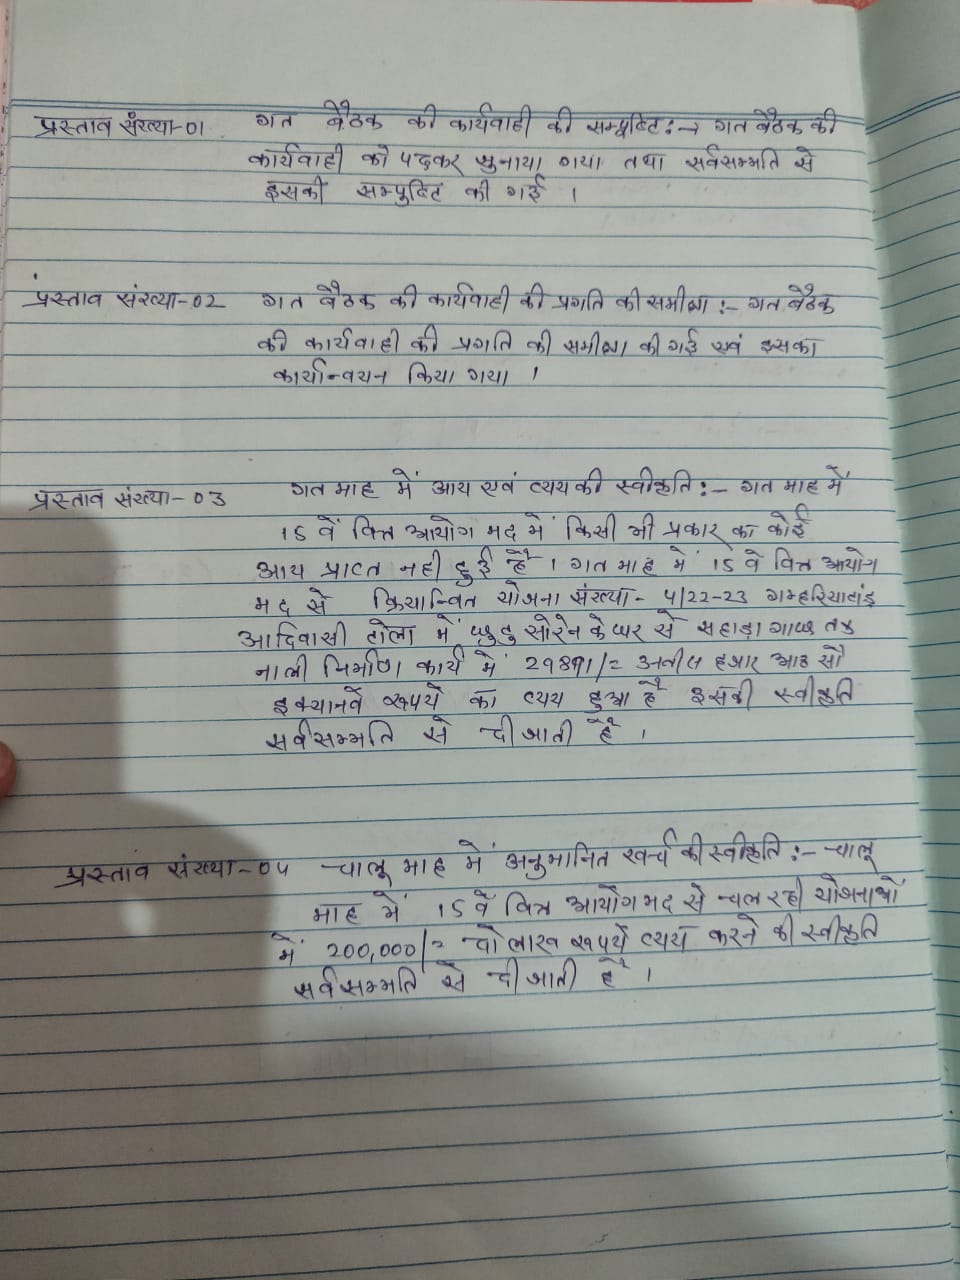 प्रस्ताव संख्या-01 गत बैठक की कार्यवाही की सम्पुष्टि:→ गत बैठक की
कार्यवाही को पढ़कर सुनाया गया तथा सर्वसम्मति से
इसकी सम्पुष्टि की गई ।
प्रस्ताव संख्या-02 गत बैठक की कार्यवाही की प्रगति की समीक्षा :- गत बैठक
की कार्यवाही की प्रगति की समीक्षा की गई एवं इसका
कार्यान्वयन किया गया ।
प्रस्ताव संख्या-03 गत माह में आय एवं व्यय की स्वीकृति:- गत माह में
15 वें वित्त आयोग मद में किसी भी प्रकार का कोई
आय प्राप्त नहीं हुई है । गत माह में 15 वें वित्त आयोग
मद से क्रियान्वित योजना संख्या- 4/22-23 गम्हरियाटांड़
आदिवासी टोला में सोरेन के घर से गाछ तक
नाली निर्माण कार्य में 29891/= हजार आठ सौ
इक्यानवें रूपये का व्यय हुआ है इसकी स्वीकृति
सर्वसम्मति से दी जाती है ।
प्रस्ताव संख्या-04 चालू माह में अनुमानित खर्च की स्वीकृति :- चालू
माह में 15 वें वित्त आयोग मद से चल रही योजनाओं
में 200,000/= दो लाख रूपये व्यय करने की स्वीकृति
सर्वसम्मति से दी जाती है ।